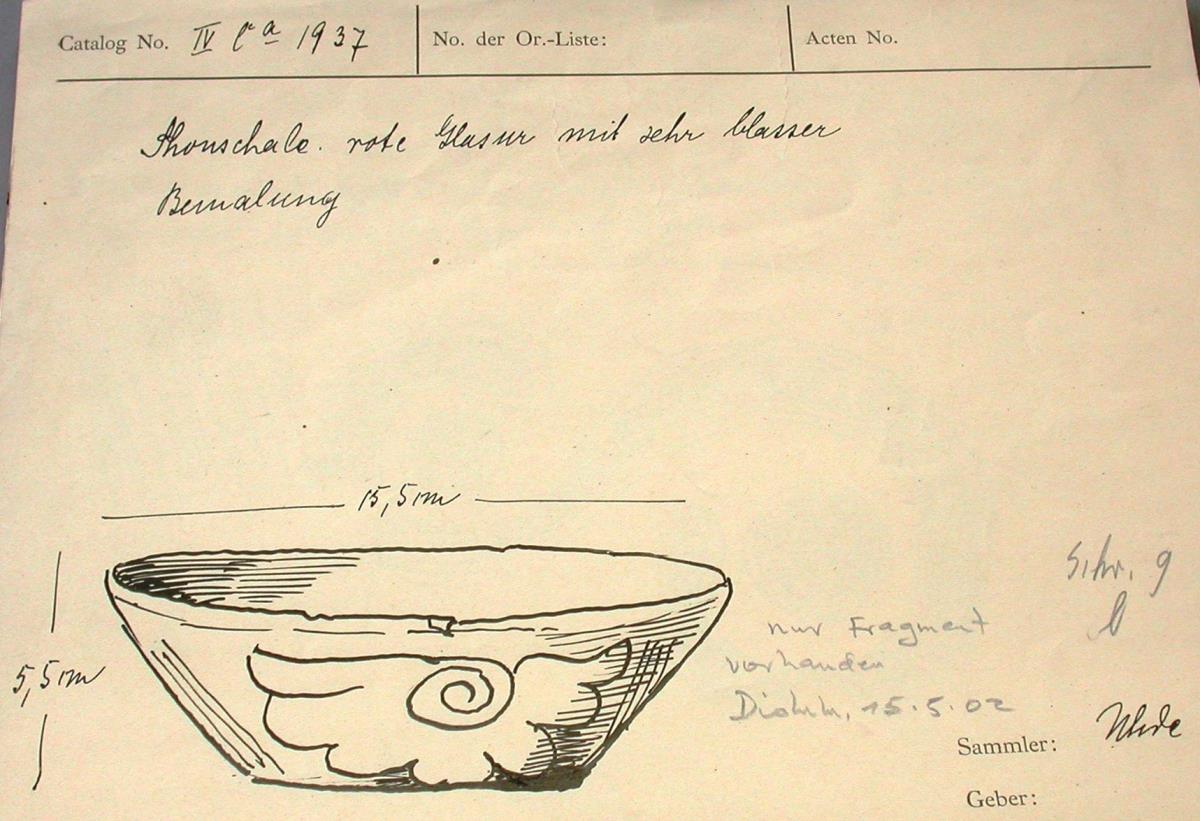 Catalog No. IV Ca 1937 No. der Or.-Liste: Acten No.
Thonschale. rote Glasur mit sehr blasser
Bemalung
15,5 cm
5,5 cm
Schr. 9
b
nur Fragment
vorhanden
15.5.02
Sammler: Uhde
Geber: